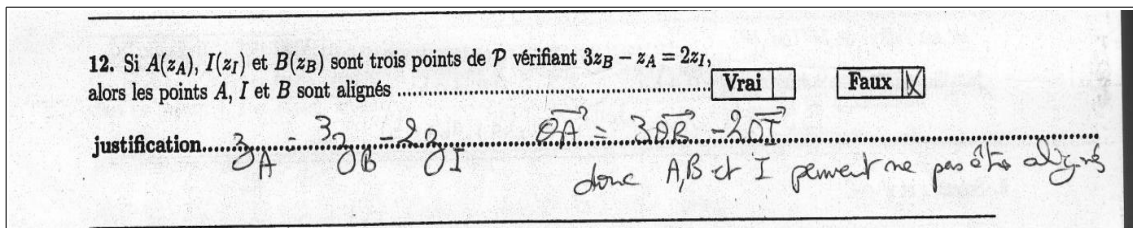 12. Si A(z_A), I(z_I) et B(z_B) sont trois points de P vérifiant 3z_B − z_A = 2z_I,
alors les points A, I et B sont alignés .......... Vrai Faux X
justification..... z_A = 3z_B − 2z_I OA = 3OB − 2OI
donc A,B et I peuvent ne pas être alignés